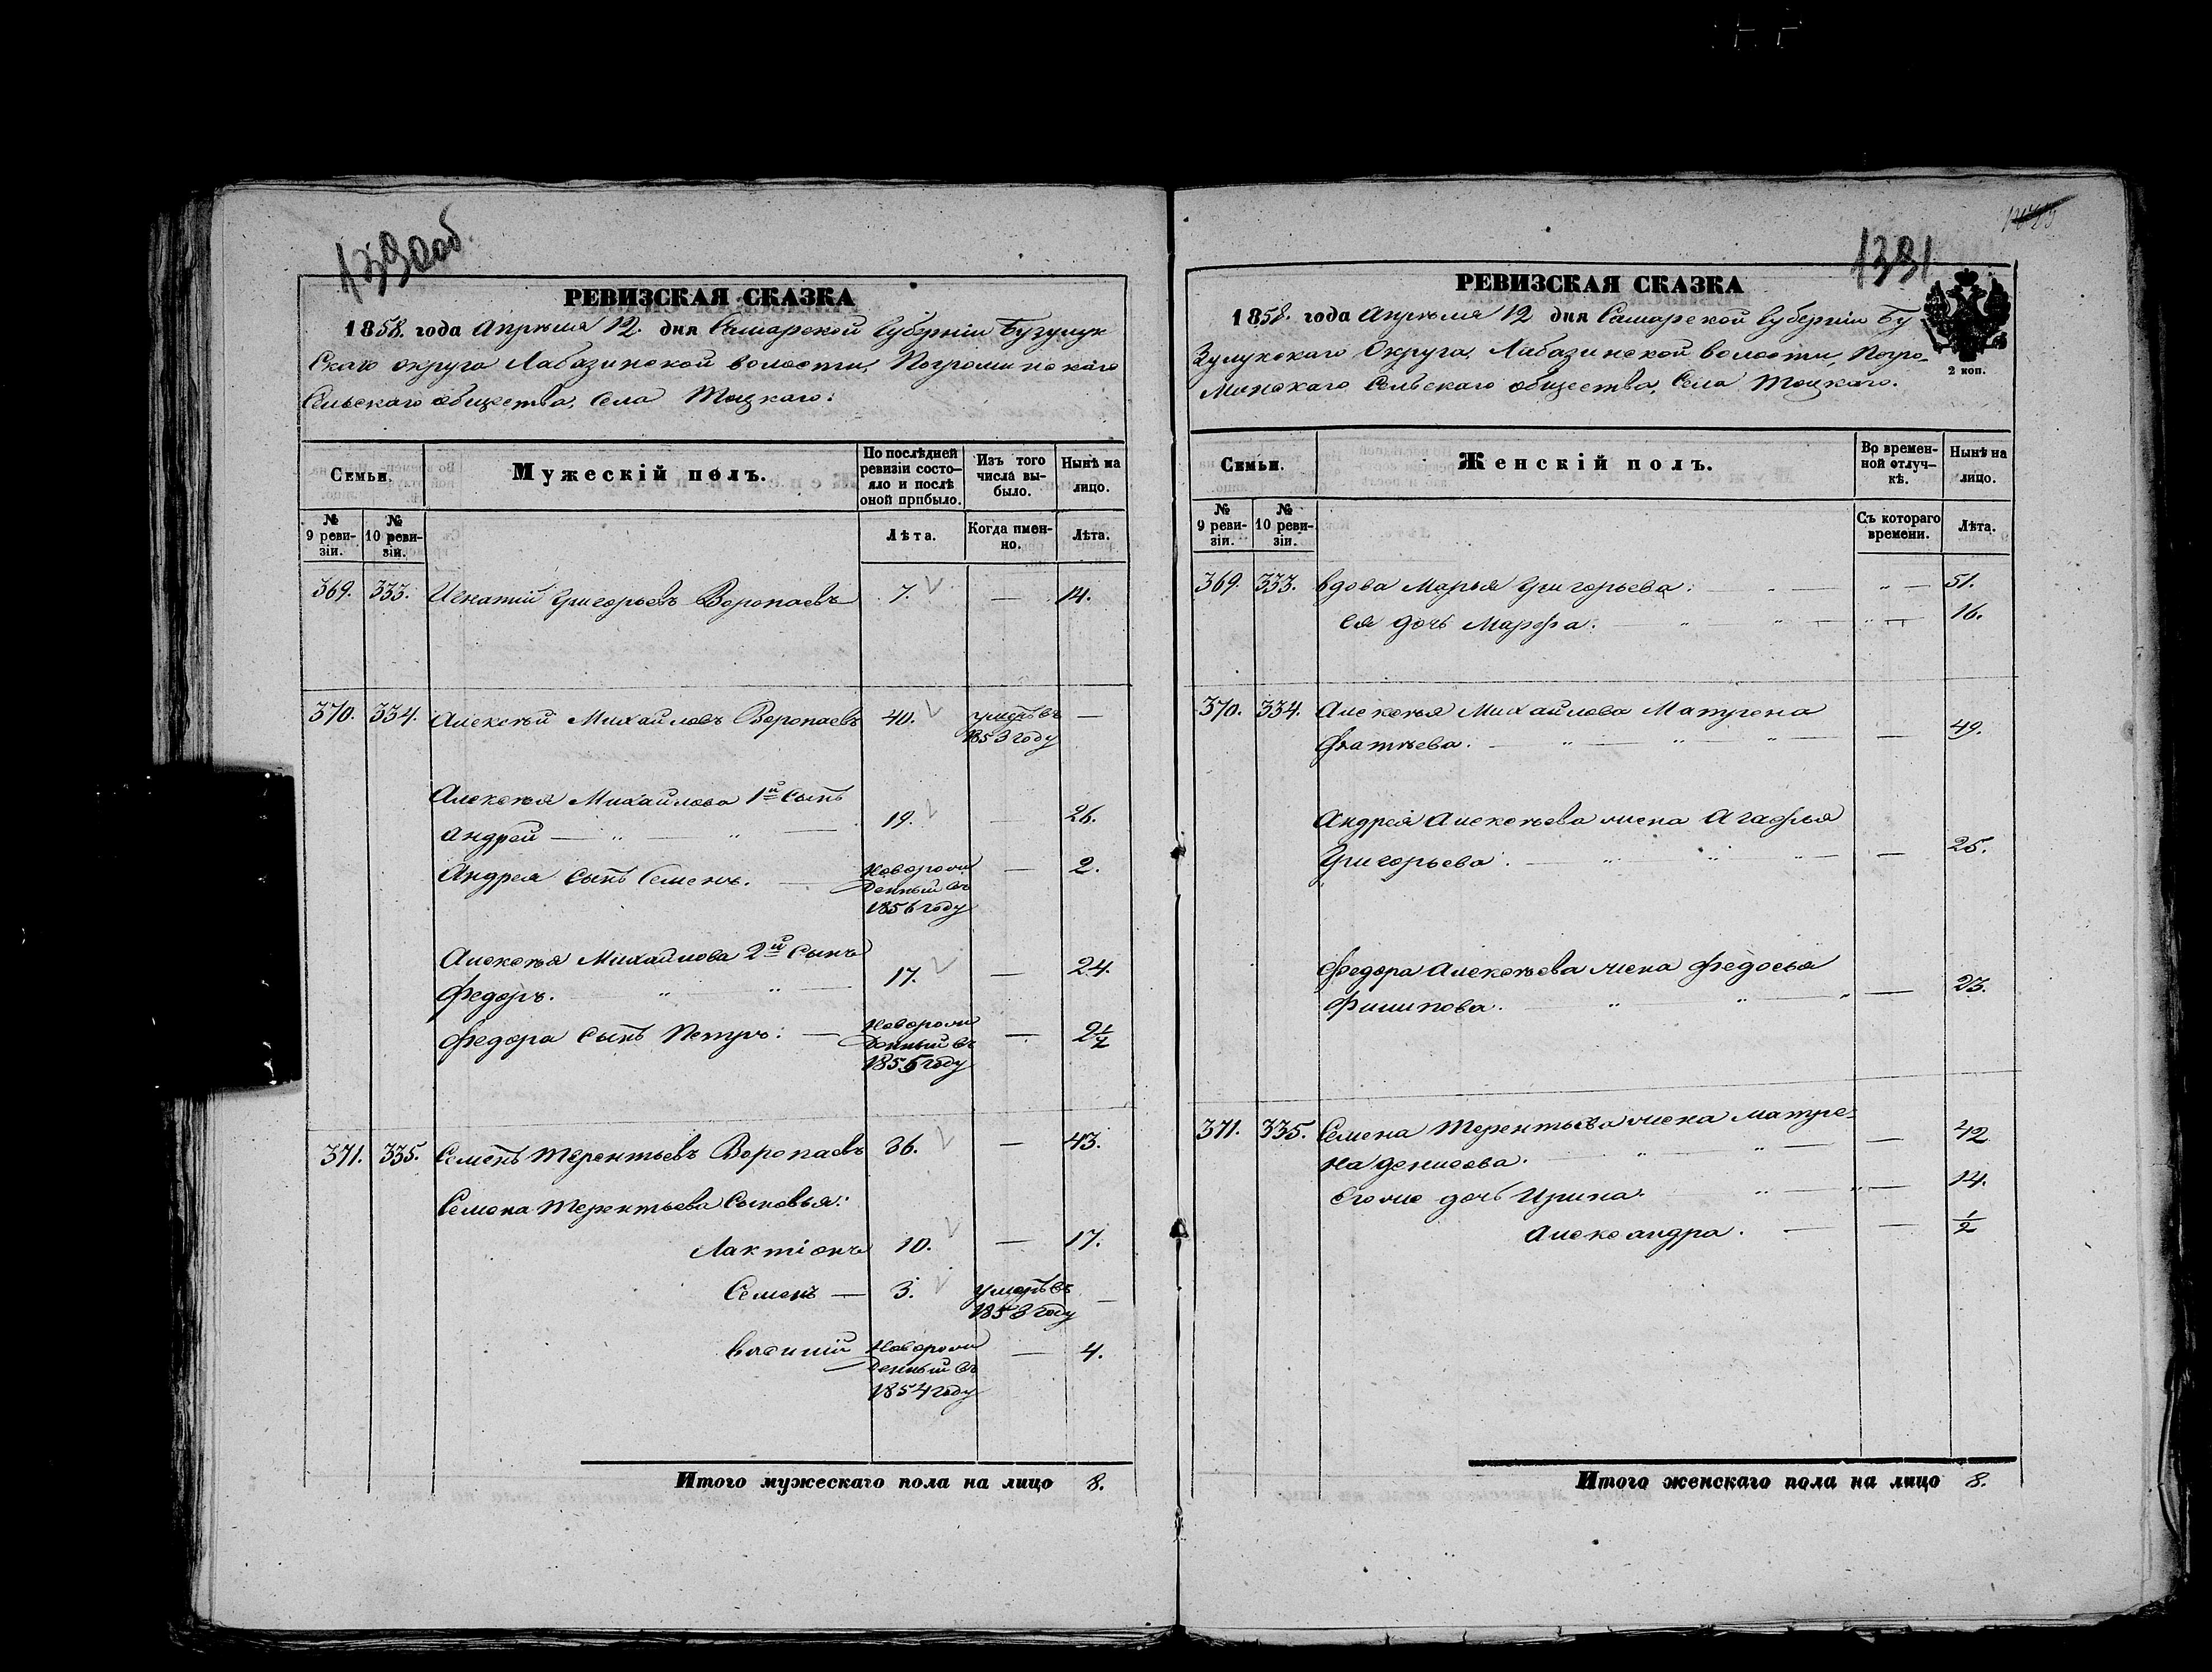 1390об
РЕВИЗСКАЯ СКАЗКА
1858. года Апрѣля 12. дня Самарской Губерніи Бузулук
скаго округа Лабазинской волости, Погроминскаго
Сельскаго общества, Села Тоцкаго:
Семьи.
Мужескій полъ.
По послѣдней ревизіи состо-
яло и послѣ оной прибыло.
Изъ того числа вы-
было.
Нынѣ на лицо.
№ 9 реви-
зіи.
№ 10 реви-
зіи.
Лѣта.
Когда имен-
но.
Лѣта.
369. 333. Игнатій Григорьевъ Воропаевъ 7. — 14.
370. 334. Алексѣй Михайловъ Воропаевъ 40. умеръ въ 1853 году —
Алексѣя Михайлова 1й Сынъ
Андрей — 19. — 26.
Андрея Сынъ Семенъ. — Новорож
денный въ — 2.
1856 году
Алексѣя Михайлова 2й Сынъ
Федоръ. — 17. — 24.
Федора Сынъ Петръ: — Новорож
денный въ — 2 1/2
1855 году
371. 335. Семенъ Терентьевъ Воропаевъ 36. — 43.
Семена Терентьева Сыновья:
Лактіонъ 10. — 17.
Семенъ — 3. умеръ въ 1853 году —
Василій Новорож
денный въ — 4.
1854 году
Итого мужескаго пола на лицо 8.
1391
РЕВИЗСКАЯ СКАЗКА
1858. года Апрѣля 12 дня Самарской Губерніи Бу
зулукскаго Округа, Лабазинской волости, Погро-
минскаго Сельскаго общества, Села Тоцкаго.
2 коп.
Семьи.
Женскій полъ.
Во времен-
ной отлуч-
кѣ.
Нынѣ на лицо.
№ 9 реви-
зіи.
№ 10 реви-
зіи.
Съ котораго времени.
Лѣта.
369. 333. Вдова Марья Григорьева: — 51.
Ея дочь Марфа: — 16.
370. 334. Алексѣя Михайлова Матрена
Фатѣева. — 49.
Андрея Алексѣева жена Агафья
Григорьева. — 25.
Федора Алексѣева жена Федосья
Филипова. — 23.
371. 335. Семена Терентьева жена Матре-
на Денисова. — 42
Его же дочь Ирина. — 14.
Александра. — 1/2
Итого женскаго пола на лицо 8.